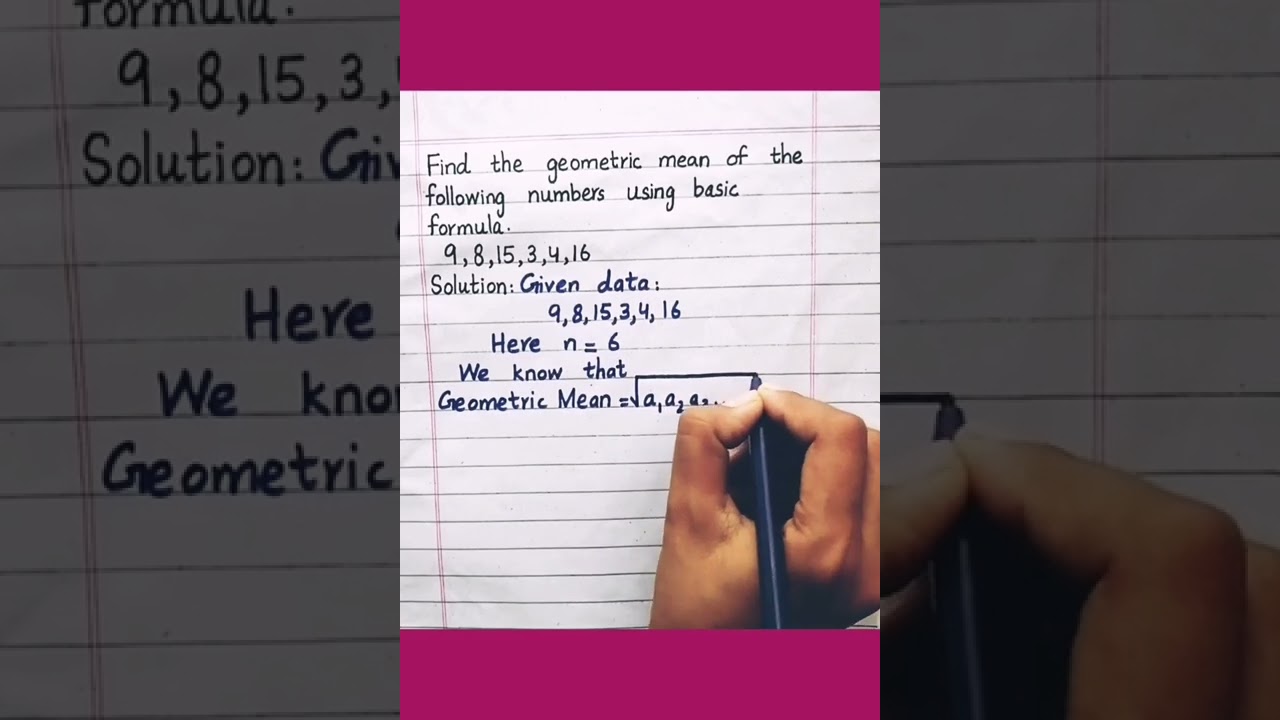 Find the geometric mean of the
following numbers using basic
formula.
9,8,15,3,4,16
Solution: Given data:
9,8,15,3,4,16
Here n = 6
We know that
Geometric Mean = √a₁a₂a₃..